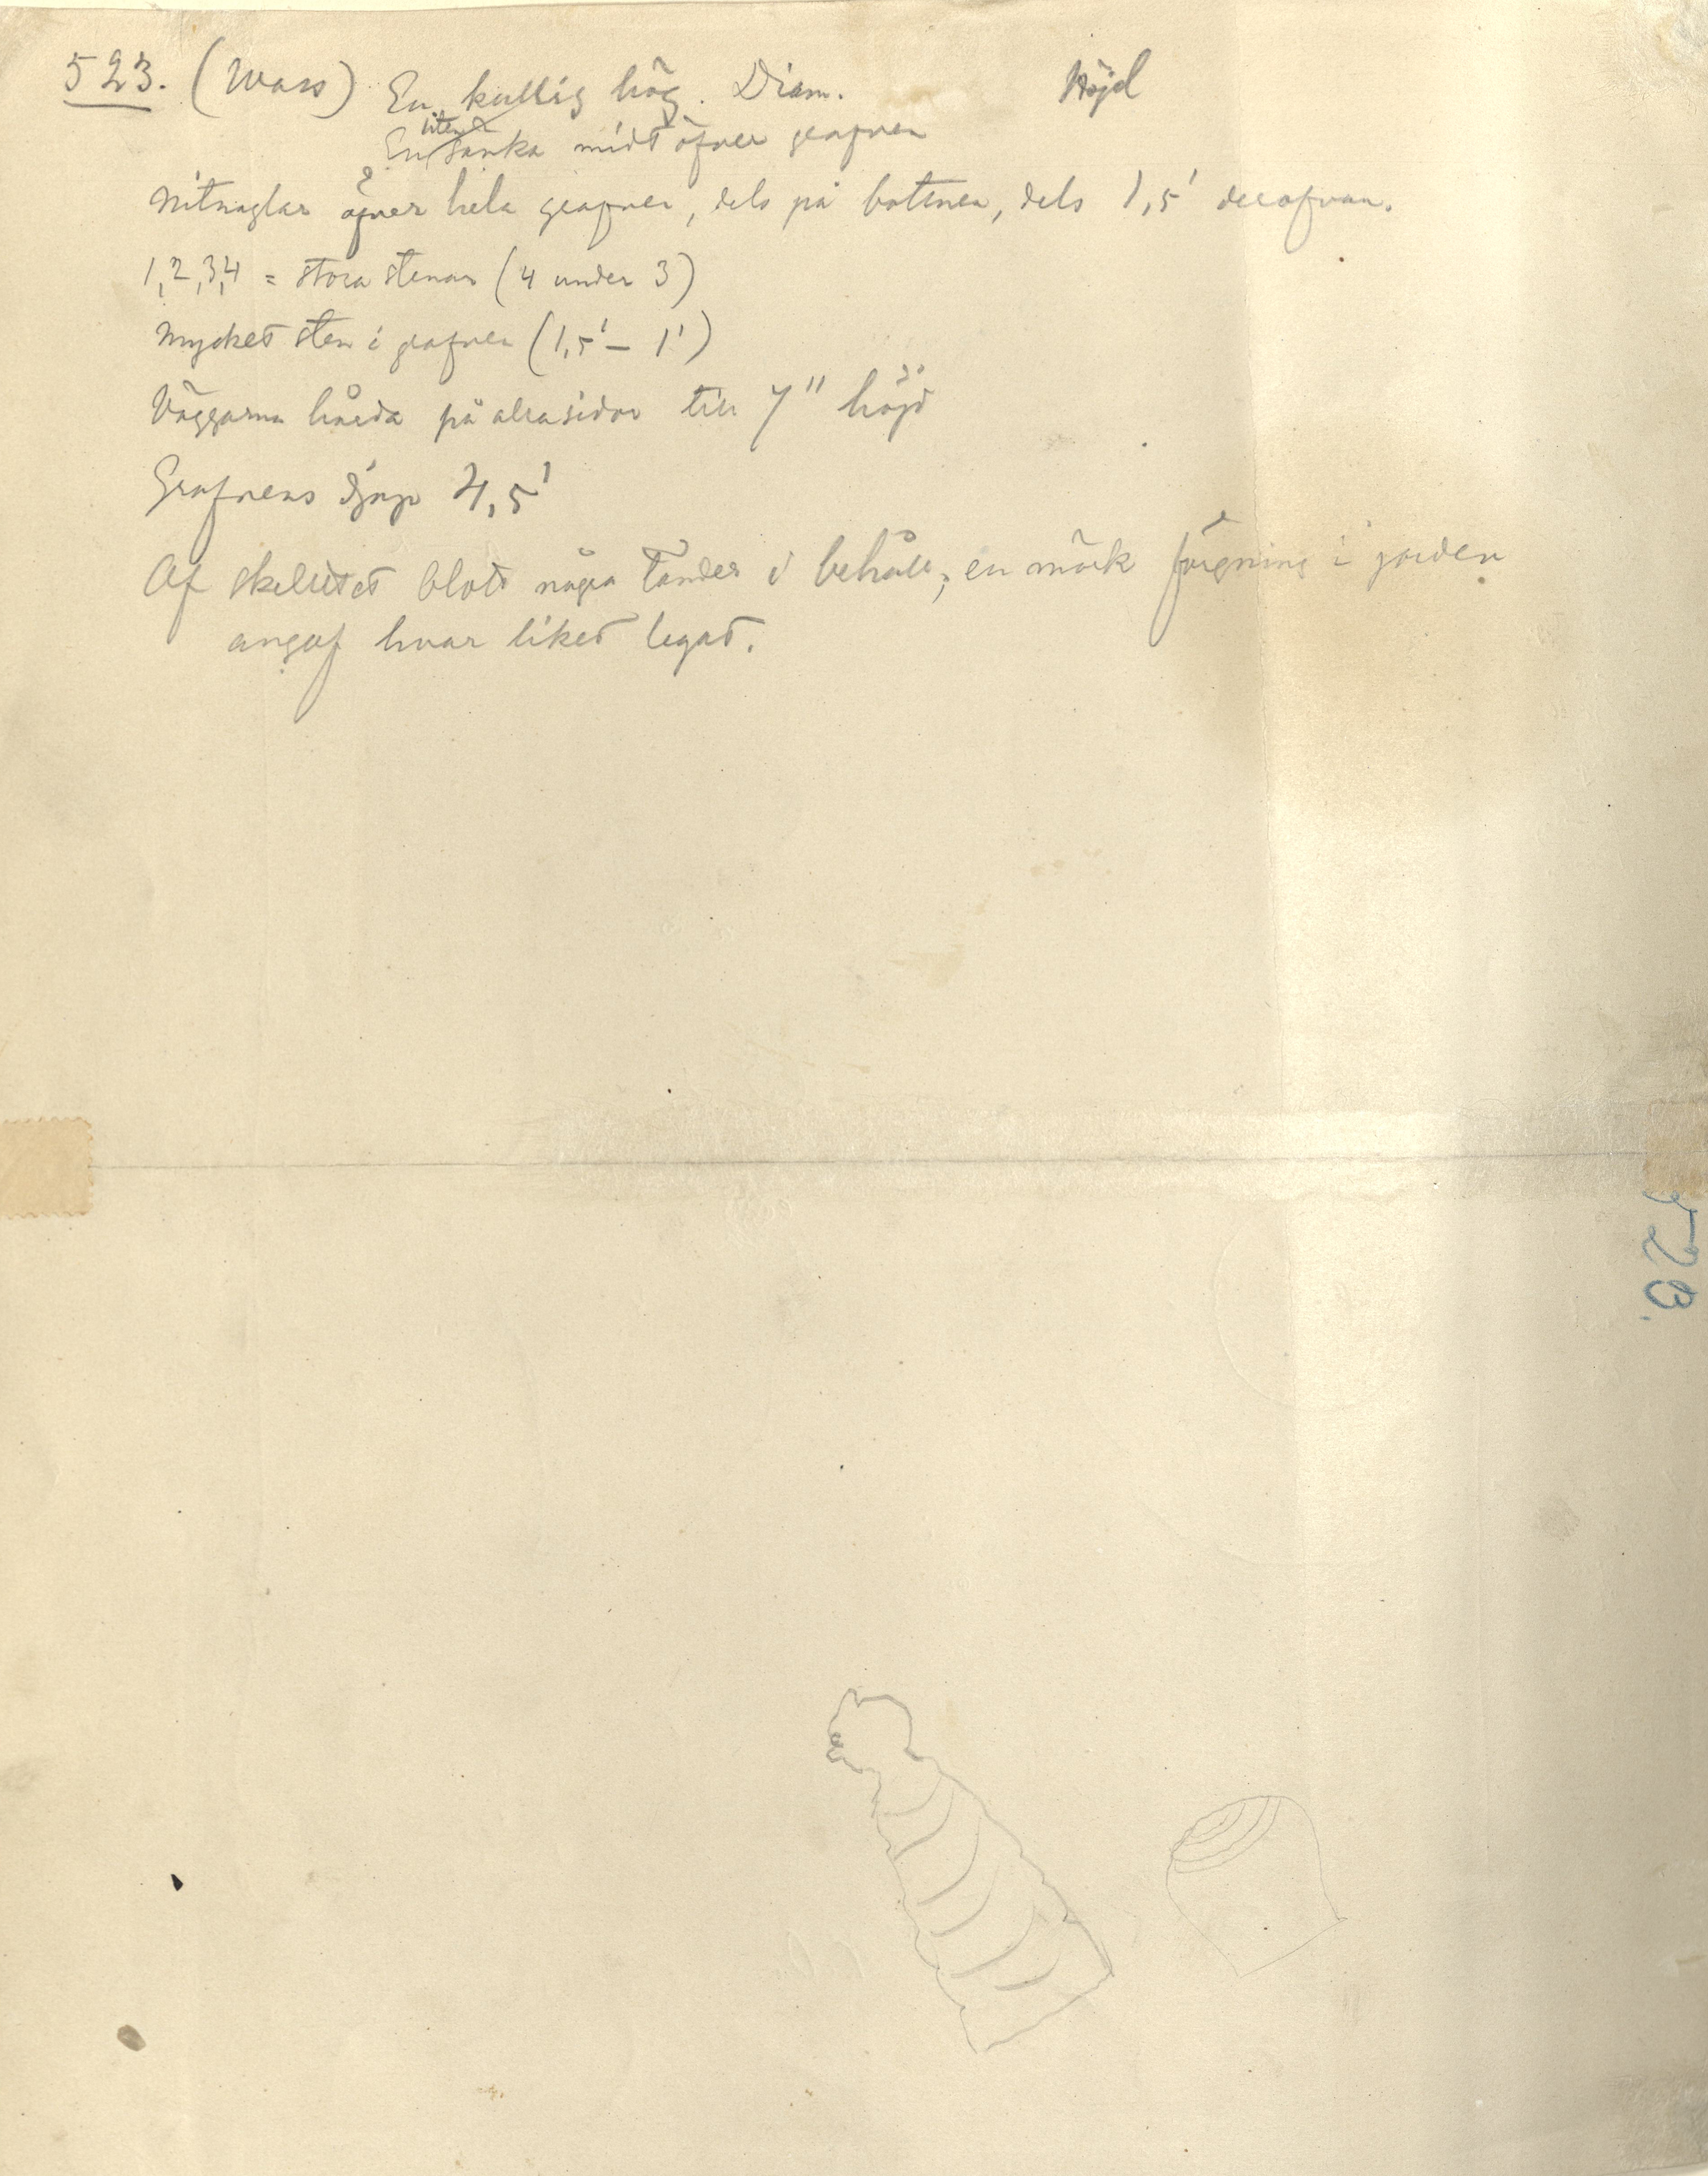 523. (Wass) En kullrig hög. Diam. Höjd
En liten sänka midt öfver grafven
Nitnaglar öfver hela grafven, dels på bottnen, dels 1,5' derofvan.
1,2,3,4 = stora stenar (4 under 3)
Mycket sten i grafven (1,5' – 1')
Väggarna hårda på alla sidor till 7" höjd
Grafvens djup 4,5'
Af skelettet blott några tänder i behåll; en mörk färgning i jorden
angaf hvar liket legat.
523.